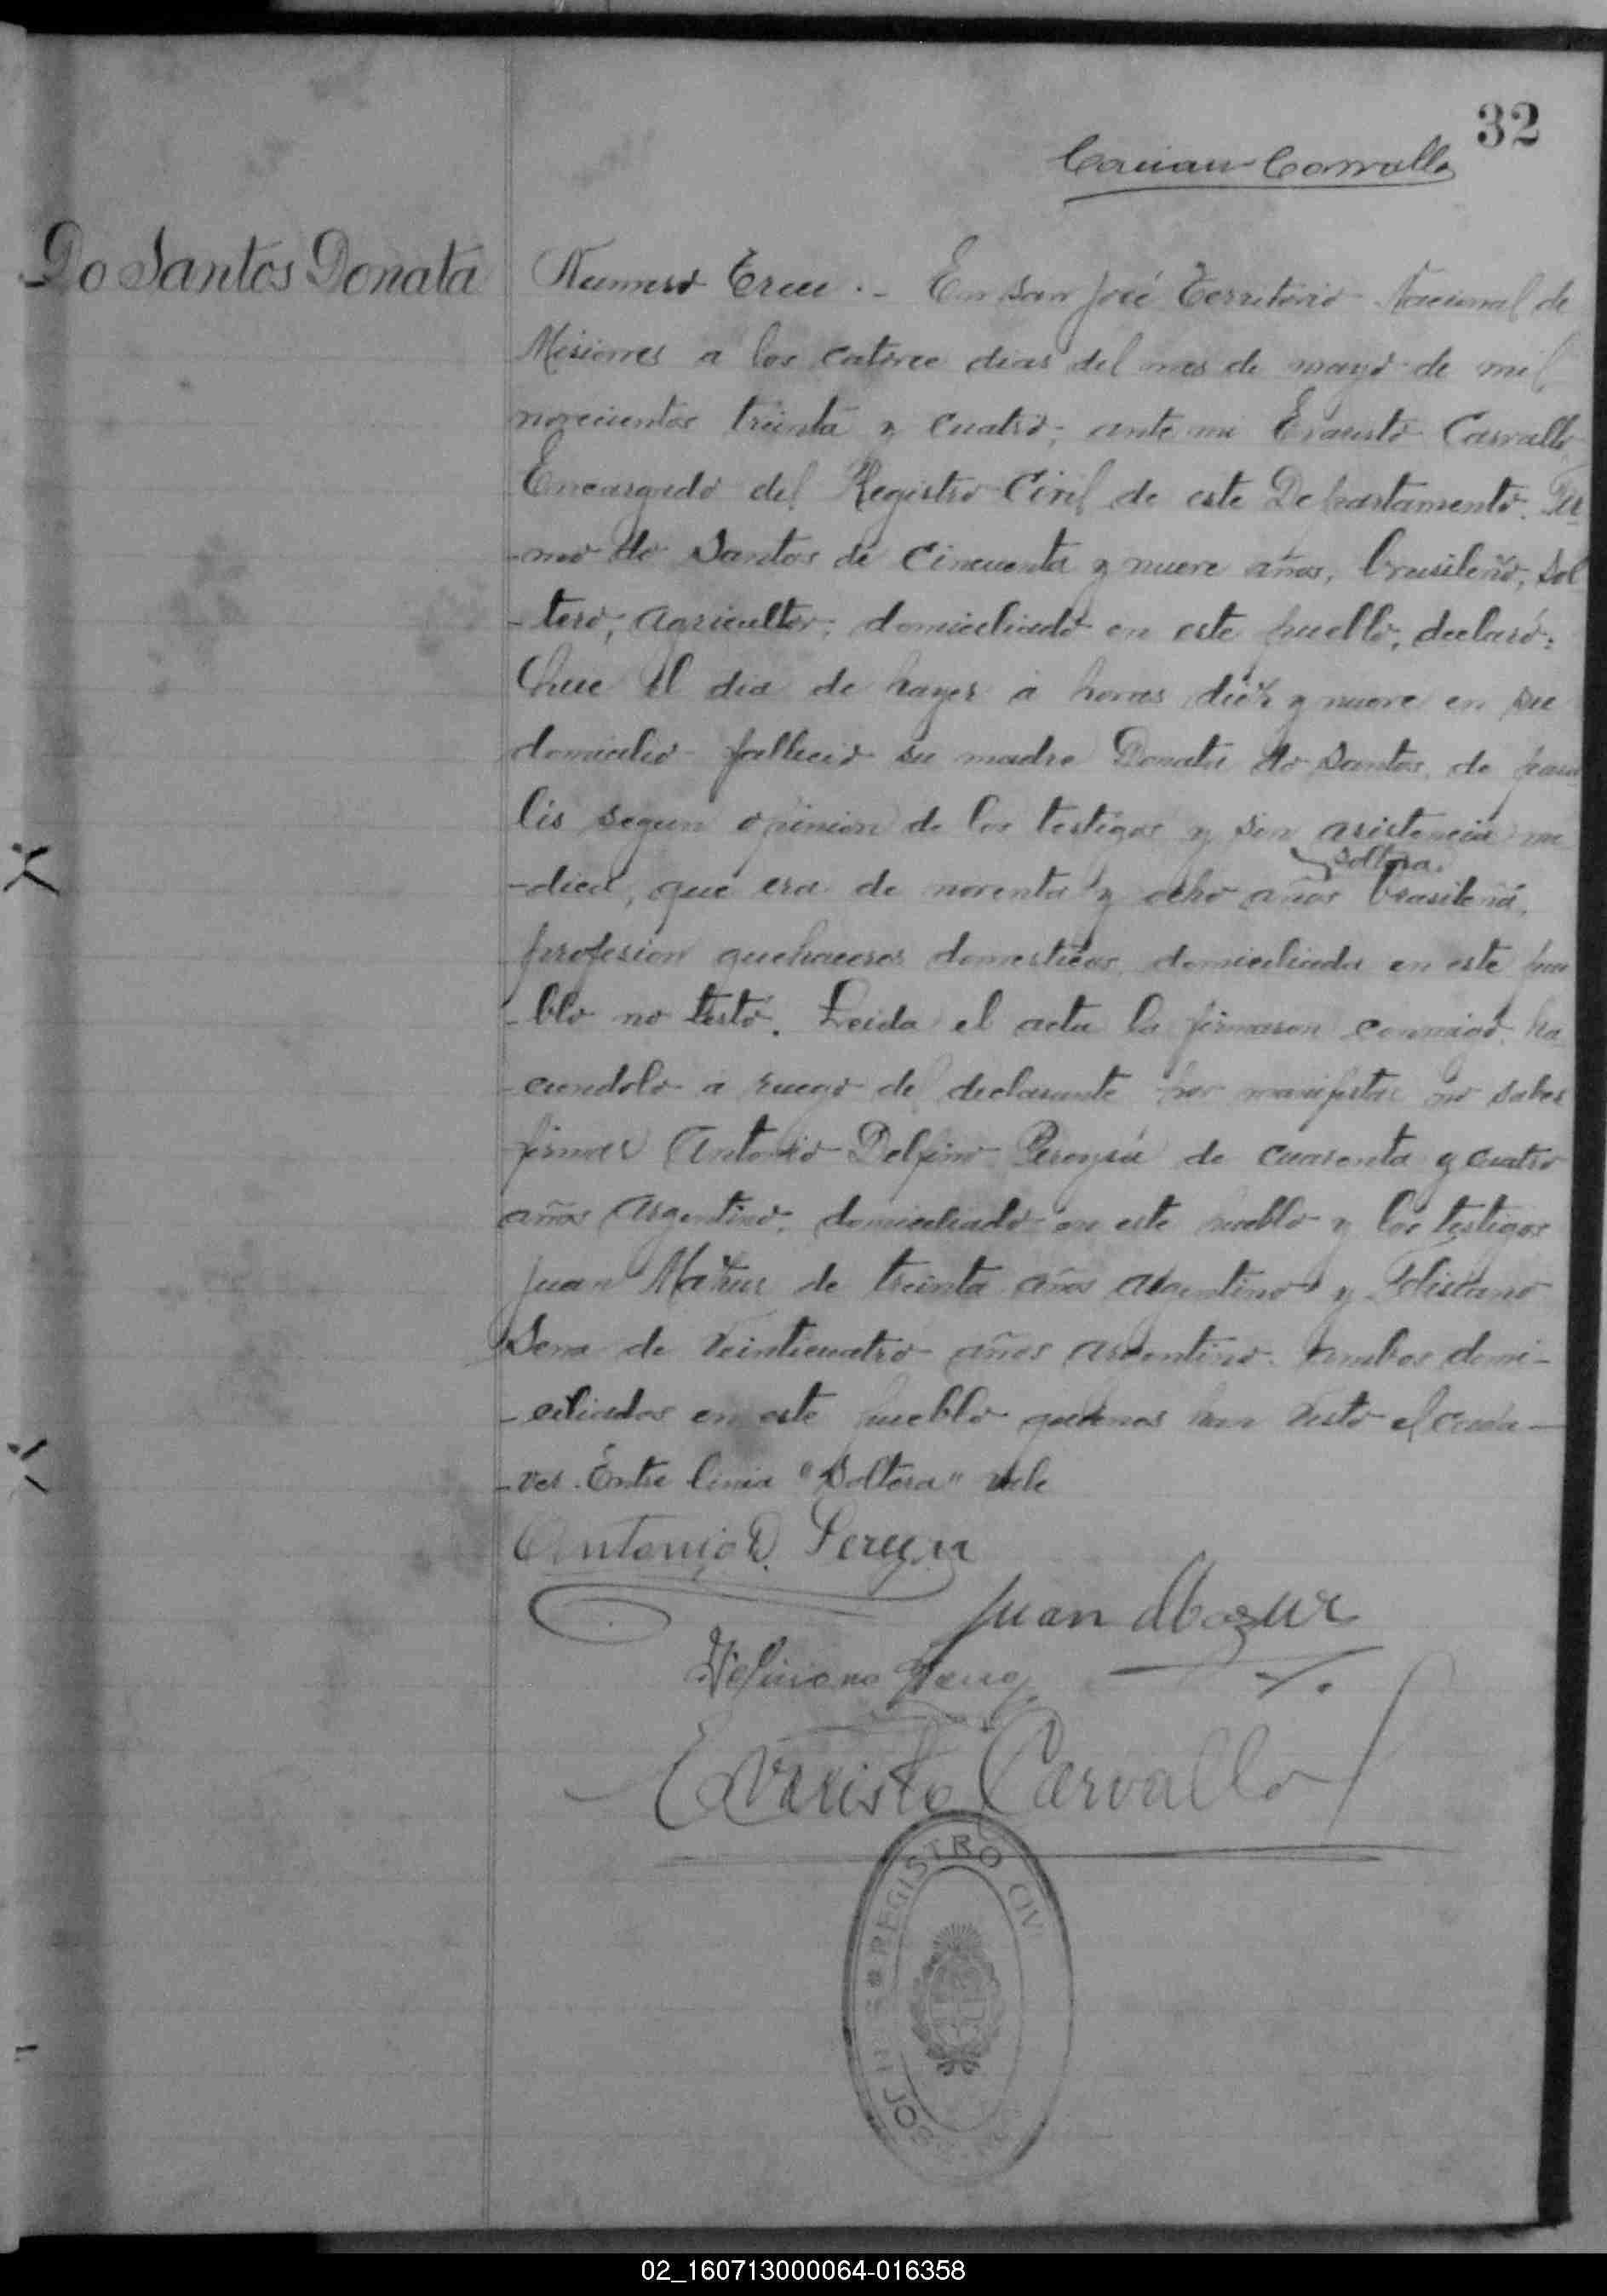 32
Do Santos Donata
Numero Trece .- En San José Territorio Nacional de
Misiones a los catorce dias del mes de mayo de mil
novecientos treinta y cuatro; ante mi Evaristo Carvallo
Encargado del Registro Civil de este Departamento.
do Santos de cincuenta y nueve años, brasileño, sol
-tero, agricultor, domiciliado en este pueblo, declaró:
Que el dia de hayer a horas diez y nueve en su
domicilio fallecio su madre Donata do Santos, de
lis segun opinion de los testigos y sin asistencia me
soltera.
-dica, que era de noventa y ocho años brasileña,
profesion quehaceres domesticos, domiciliada en este pue
-blo no testó. Leida el acta la firmaron conmigo, ha
-ciendolo a ruego del declarante por manifestar no saber
firmar Antonio Delfino Pereyra de cuarenta y cuatro
años argentino, domiciliado en este pueblo y los testigos
Juan de treinta años argentino y Feliciano
Sena de veinticuatro años argentino, ambos domi-
-ciliados en este pueblo quienes han visto el cada-
-ver. Entre linia "Soltera" vale
Antonio D. Pereyra
Juan
Feliciano Sena
Evaristo Carvallo
REGISTRO CIV
N JOSE
02_160713000064-016358